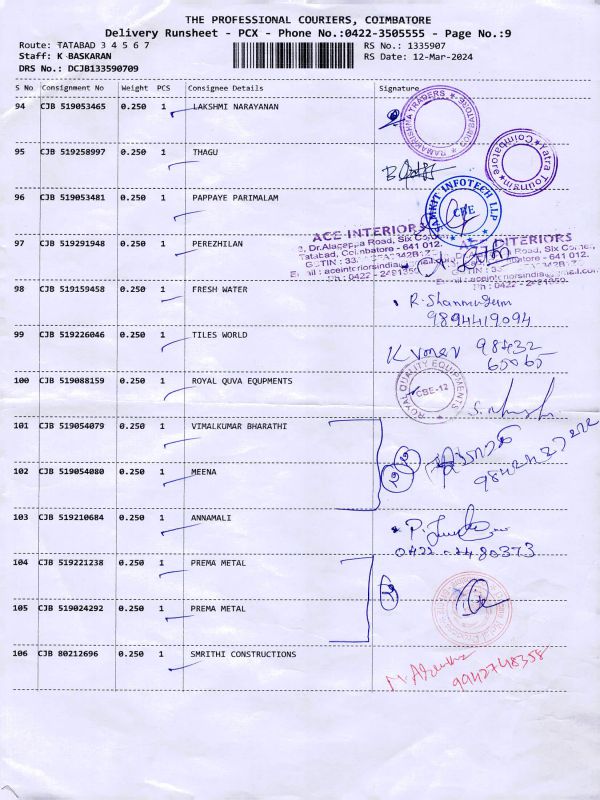 THE PROFESSIONAL COURIERS, COIMBATORE
Delivery Runsheet - PCX - Phone No.:0422-3505555 - Page No.:9
Route: TATABAD 3 4 5 6 7
RS No.: 1335907
Staff: K BASKARAN
RS Date: 12-Mar-2024
DRS No.: DCJB133590709
S No Consignment No Weight PCS Consignee Details Signature
94 CJB 519053465 0.250 1 LAKSHMI NARAYANAN
RAMAKRISHNA TRADERS
COIMBATORE
95 CJB 519258997 0.250 1 THAGU
Yatra Tourism
Coimbatore
96 CJB 519053481 0.250 1 PAPPAYE PARIMALAM
INFOTECH LLP
CBE
97 CJB 519291948 0.250 1 PEREZHILAN
ACE INTERIORS
3, Dr.Alagappa Road, Six Corner,
Tatabad, Coimbatore - 641 012.
98 CJB 519159458 0.250 1 FRESH WATER
R. Shanmugam
9894419094
99 CJB 519226046 0.250 1 TILES WORLD
98432
65065
100 CJB 519088159 0.250 1 ROYAL QUVA EQUPMENTS
ROYAL QUALITY EQUIPMENTS
CBE-12
101 CJB 519054079 0.250 1 VIMALKUMAR BHARATHI
102 CJB 519054080 0.250 1 MEENA
103 CJB 519210684 0.250 1 ANNAMALI
0422 2480373
104 CJB 519221238 0.250 1 PREMA METAL
105 CJB 519024292 0.250 1 PREMA METAL
106 CJB 80212696 0.250 1 SMRITHI CONSTRUCTIONS
9942748358